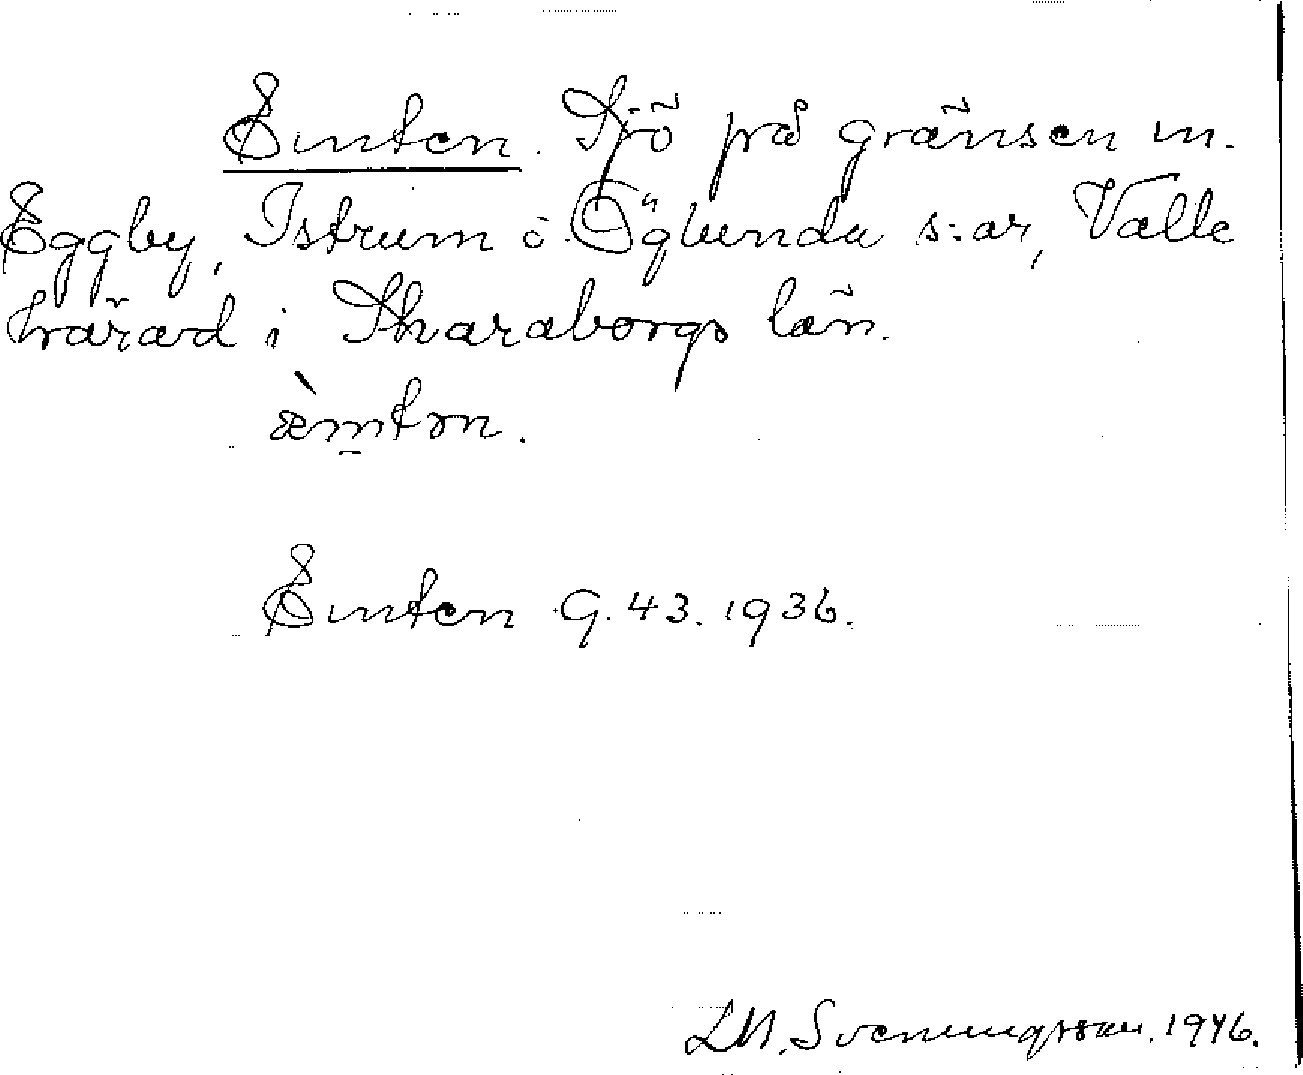 Emten. Sjö på gränsen m.
Eggby, Istrum o. Öglunda s:ar, Valle
härad i Skaraborgs län.
æ̀mtɔn.
Emten G. 43. 1936.
D.N. Svenningsson. 1946.